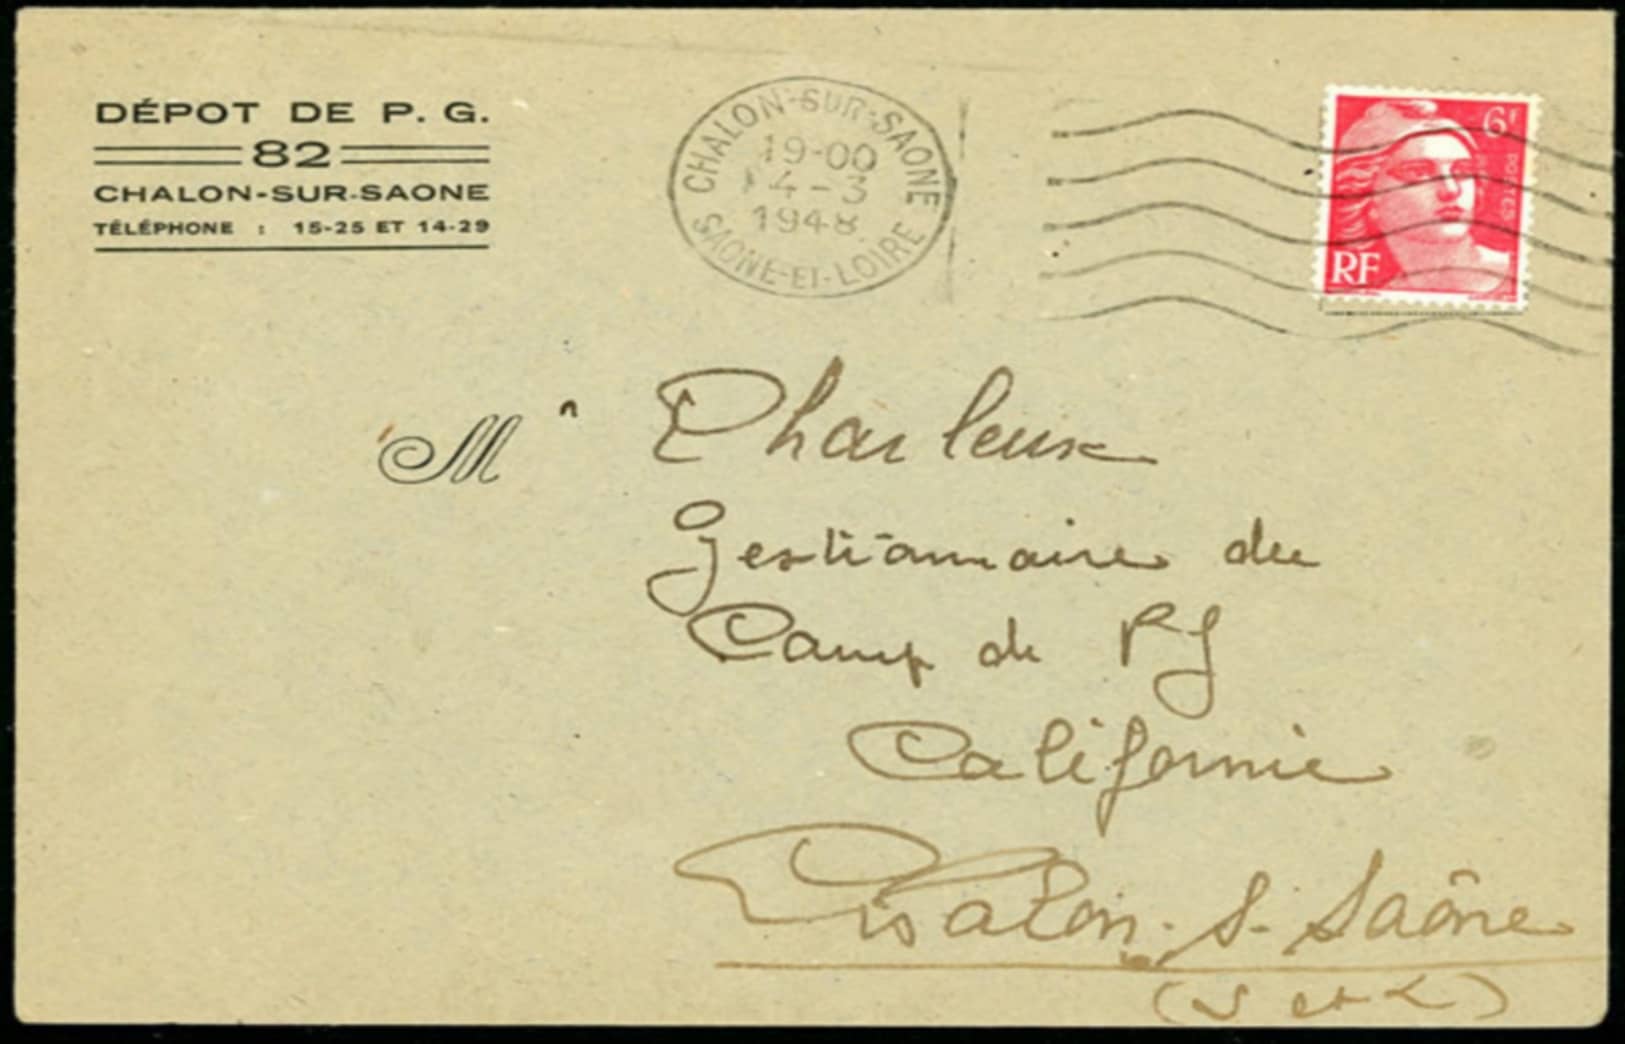 DÉPOT DE P. G.
82
CHALON-SUR-SAONE
TÉLÉPHONE : 15-25 ET 14-29
CHALON-SUR-SAONE
19-00
4-3
1948
SAONE-ET-LOIRE
6F
POSTES
RF
M r Charleux
Gestionnaire du
Camp de PG
Californie
Chalon. s. Saône
(S et L)